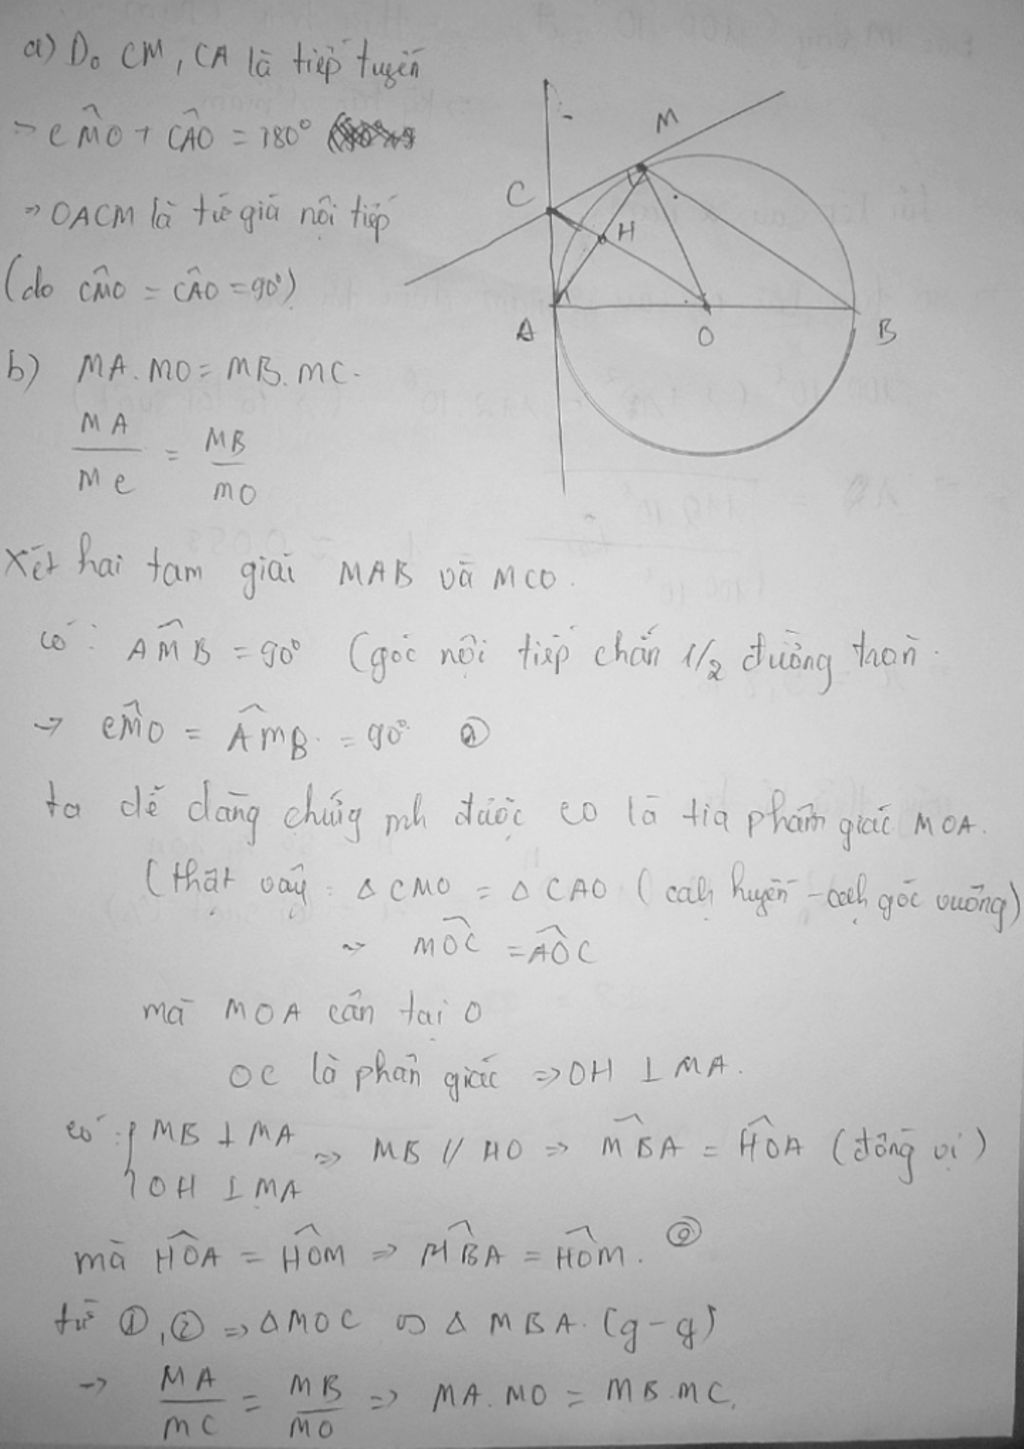 a) Do CM, CA là tiếp tuyến
→ CM̂O + CÂO = 180°
⇒ OACM là tứ giá nội tiếp
(do CM̂O = CÂO = 90°)
C
M
H
A
O
B
b) MA. MO = MB. MC.
MA/MC = MB/MO
xét hai tam giái MAB và MCO.
có: AM̂B = 90° (góc nội tiếp chắn 1/2 đường tròn.
→ CM̂O = AM̂B = 90° ①
ta dễ dàng chứng mh được CO là tia phân giác MOA.
(thật vậy: △ CMO = △ CAO (cạh huyền - cạh góc vuông)
→ MÔC = AÔC
mà MOA cân tại O
OC là phân giác ⇒ OH ⊥ MA.
có: { MB ⊥ MA
OH ⊥ MA
⇒ MB // HO ⇒ MB̂A = HÔA (đồng vị)
mà HÔA = HÔM ⇒ MB̂A = HÔM. ②
từ ①, ② ⇒ △ MOC ∽ △ MBA. (g-g)
→ MA/MC = MB/MO ⇒ MA. MO = MB. MC.